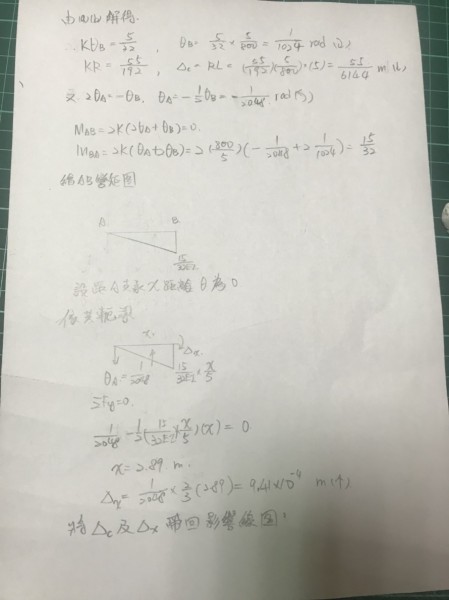 解得.
Kθ_B = 5/32 , θ_B = 5/32 × 5/800 = 1/1024 rad
KR = 55/192 , Δ_c = RL = (55/192)(5/800)·(5) = 55/6144 m
又 2θ_A = -θ_B, θ_A = -1/2 θ_B = -1/2048 rad
M_AB = 2K(2θ_A + θ_B) = 0.
M_BA = 2K(θ_A + 2θ_B) = 2(800/5)(-1/2048 + 2 1/1024) = 15/32
A B
15/32EI
θ 為 0
x Δ_x
θ_A = 1/2048 15/32EI × x/5
ΣF_y = 0.
1/2048 - 1/2(15/32EI)(x/5)(x) = 0
x = 2.89 m.
= 1/2048 × 2/3 (2.89) = 9.41×10^-4 m (↑)
將 Δ_c 及 Δ_x 帶回影響線圖: